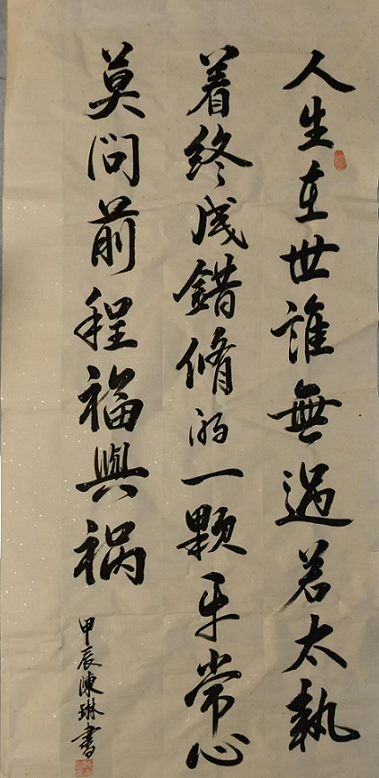 人生在世誰無過若太執
着終成錯脩得一顆平常心
莫問前程福與祸
甲辰陳琳書